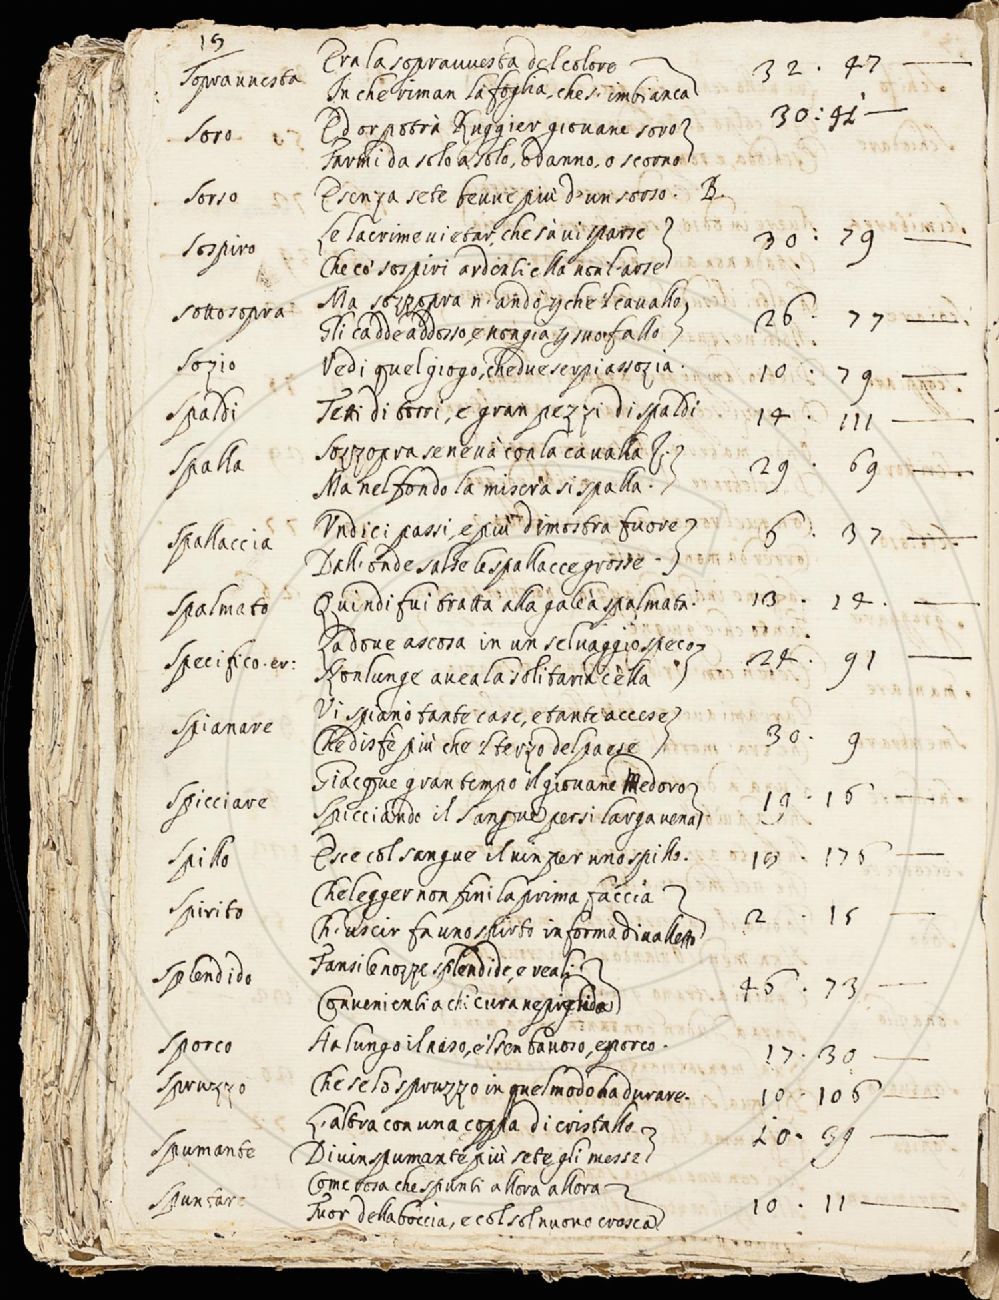 19
Sopravvesta Era la sopravvesta del colore 32 · 47
In che riman la foglia, che s'imbianca
Soro Ed or potrà Ruggier giovane soro 30 : 91
Farmi da solo a solo, o danno, o scorno
Sorso E senza sete bevve più d'un sorso. B
Sospiro Le lacrime vietar, che sù vi sparse 30 : 79
Che co' sospiri ardenti ella non l'arse
Sottosopra Ma sozzopra n'andò che 'l cavallo 26 · 77
Gli cadde addosso, e non già suo fallo
Sozio Vedi quel giogo, che due serpi assozia. 10 · 79
Spaldi Tetti di torri, e gran pezzi di spaldi 14 · 111
Spalla Sozzopra se ne va con la cavalla 29 · 69
Ma nel fondo la misera si spalla.
Spallaccia Undici passi, e più dimostra fuore 6 · 37
Dall'onde salse le spallacce grosse.
Spalmato Quindi fui tratta alla galea spalmata. 13 · 14.
Specifico. er: La dove ascosa in un selvaggio speco 24 · 91
Non lunge avea la solitaria cella
Spianare Vi spianò tante case, e tante accese 30 · 9
Che disfè più che 'l terzo del paese
Spicciare Giacque gran tempo il giovane Medoro 19 · 16
Spicciando il sangue per si larga vena
Spillo Esce col sangue il vin per uno spillo. 18 · 176
Spirito Che legger non finì la prima faccia 2 · 15
Ch'uscir fa uno spirto in forma di valletto
Splendido Fansi le nozze splendide, e reali 46 · 73
Convenienti a chi cura ne piglia
Sporco Ha lungo il naso, e'l sen bavoso, e sporco. 17 · 30
Spruzzo Che se lo spruzzo in quel modo ha durare. 10 · 106
Spumante L'altra con una coppa di cristallo 10 · 39
Di vin spumante più sete gli messe
Spuntare Come rosa che spunti allora allora 10 · 11
Fuor della boccia, e col sol nuovo cresca